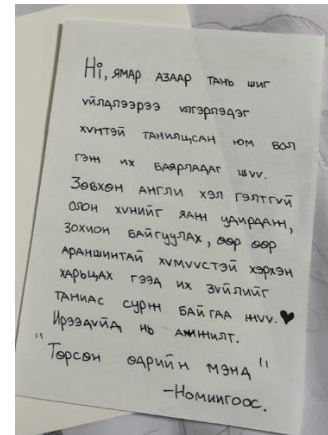 Hi, ямар азаар тань шиг
үйлдлээрээ үлгэрлэдэг
хүнтэй танилцсан юм бол
гэж их баярладаг шүү.
Зөвхөн англи хэл гэлтгүй
олон хүнийг яаж удирдаж,
зохион байгуулах, өөр өөр
араншинтай хүмүүстэй хэрхэн
харьцах гээд их зүйлийг
таниас сурж байгаа шүү. ♥
Ирээдүйд нь амжилт.
"Төрсөн өдрийн мэнд"
-Номингоос.